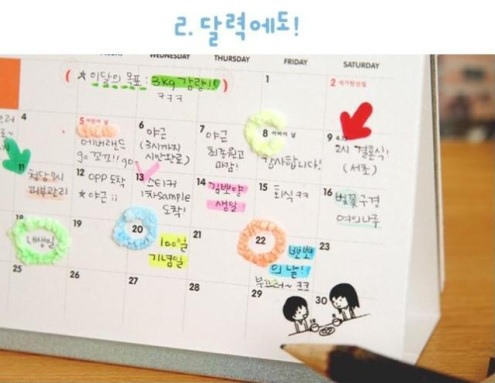 2. 달력에도!
WEDNESDAY THURSDAY FRIDAY SATURDAY
( ★ 이달의 목표 : 3kg 감량!! )
ㅋㅋㅋ
1 2 석가탄신일
4 5 어린이 날 6 야근 7 야근 8 어버이 날 9
에버랜드 (3시까지 최종원고 감사합니다! 2시 결혼식!
go 꼬꼬!! go 시안완료) 마감! (서초)
11 12 OPP 도착 13 스티커 14 김뽀양 15 회식 ㅋㅋ 16 벚꽃구경
청담9시 ★야근 ;; 1차 sample 생일 여의나루
피부관리 도착!
18 19 20 21 22 23
내생일 100일 뽀뽀
기념일 의 날!
부끄러~ ㅋㅋ
25 26 27 28 29 30